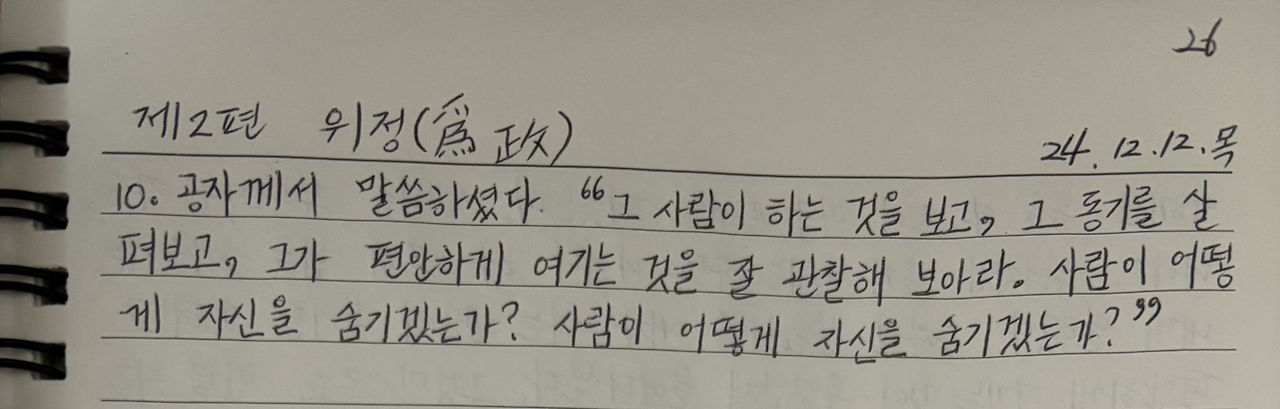 26
제2편 위정(爲政)
24.12.12.목
10. 공자께서 말씀하셨다. "그 사람이 하는 것을 보고, 그 동기를 살
펴보고, 그가 편안하게 여기는 것을 잘 관찰해 보아라. 사람이 어떻
게 자신을 숨기겠는가? 사람이 어떻게 자신을 숨기겠는가?"